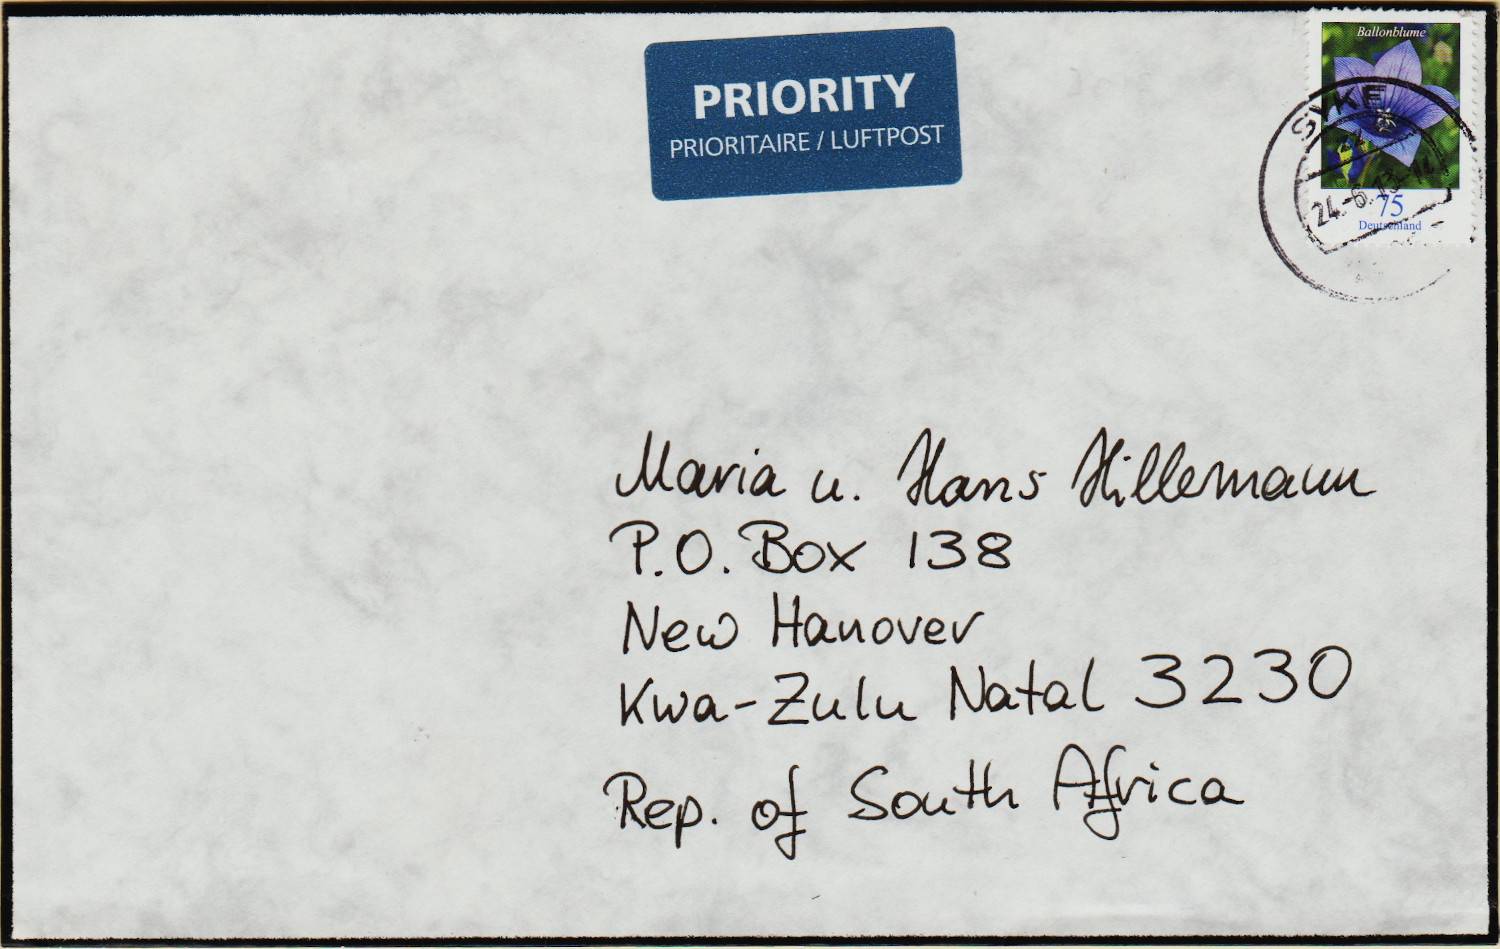 PRIORITY
PRIORITAIRE / LUFTPOST
Ballonblume
SYKE
24.-6.13-14
75
Deutschland
Maria u. Hans Hillemann
P.O. Box 138
New Hanover
Kwa-Zulu Natal 3230
Rep. of South Africa